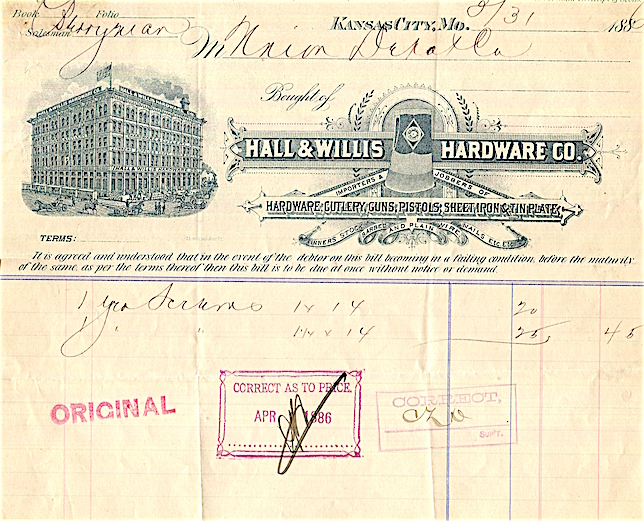 Book Folio
Salesman Perryman
Kansas City, Mo. 3/31 188
M Union Depot Co
Bought of
HALL & WILLIS HARDWARE CO.
IMPORTERS & JOBBERS OF
HARDWARE, CUTLERY, GUNS, PISTOLS, SHEET IRON & TIN PLATE,
TINNERS STOCK, BARBED AND PLAIN WIRE, NAILS, ETC. ETC.
TERMS:
It is agreed and understood that in the event of the debtor on this bill becoming in a failing condition, before the maturity
of the same, as per the terms thereof then this bill is to be due at once without notice or demand.
1 Gro Screws 1 x 14 20
1 " " 1¼ x 14 25 45
ORIGINAL
CORRECT AS TO PRICE
APR 1886
CORRECT,
SUPT.